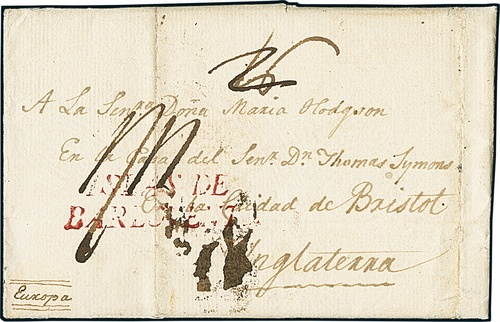 A La Senra Doña Maria Hodgson
En la Casa del Senr Dn Thomas Symons
ISLAS DE
BARLOVENTO
En la Ciudad de Bristol
Inglaterra
Europa